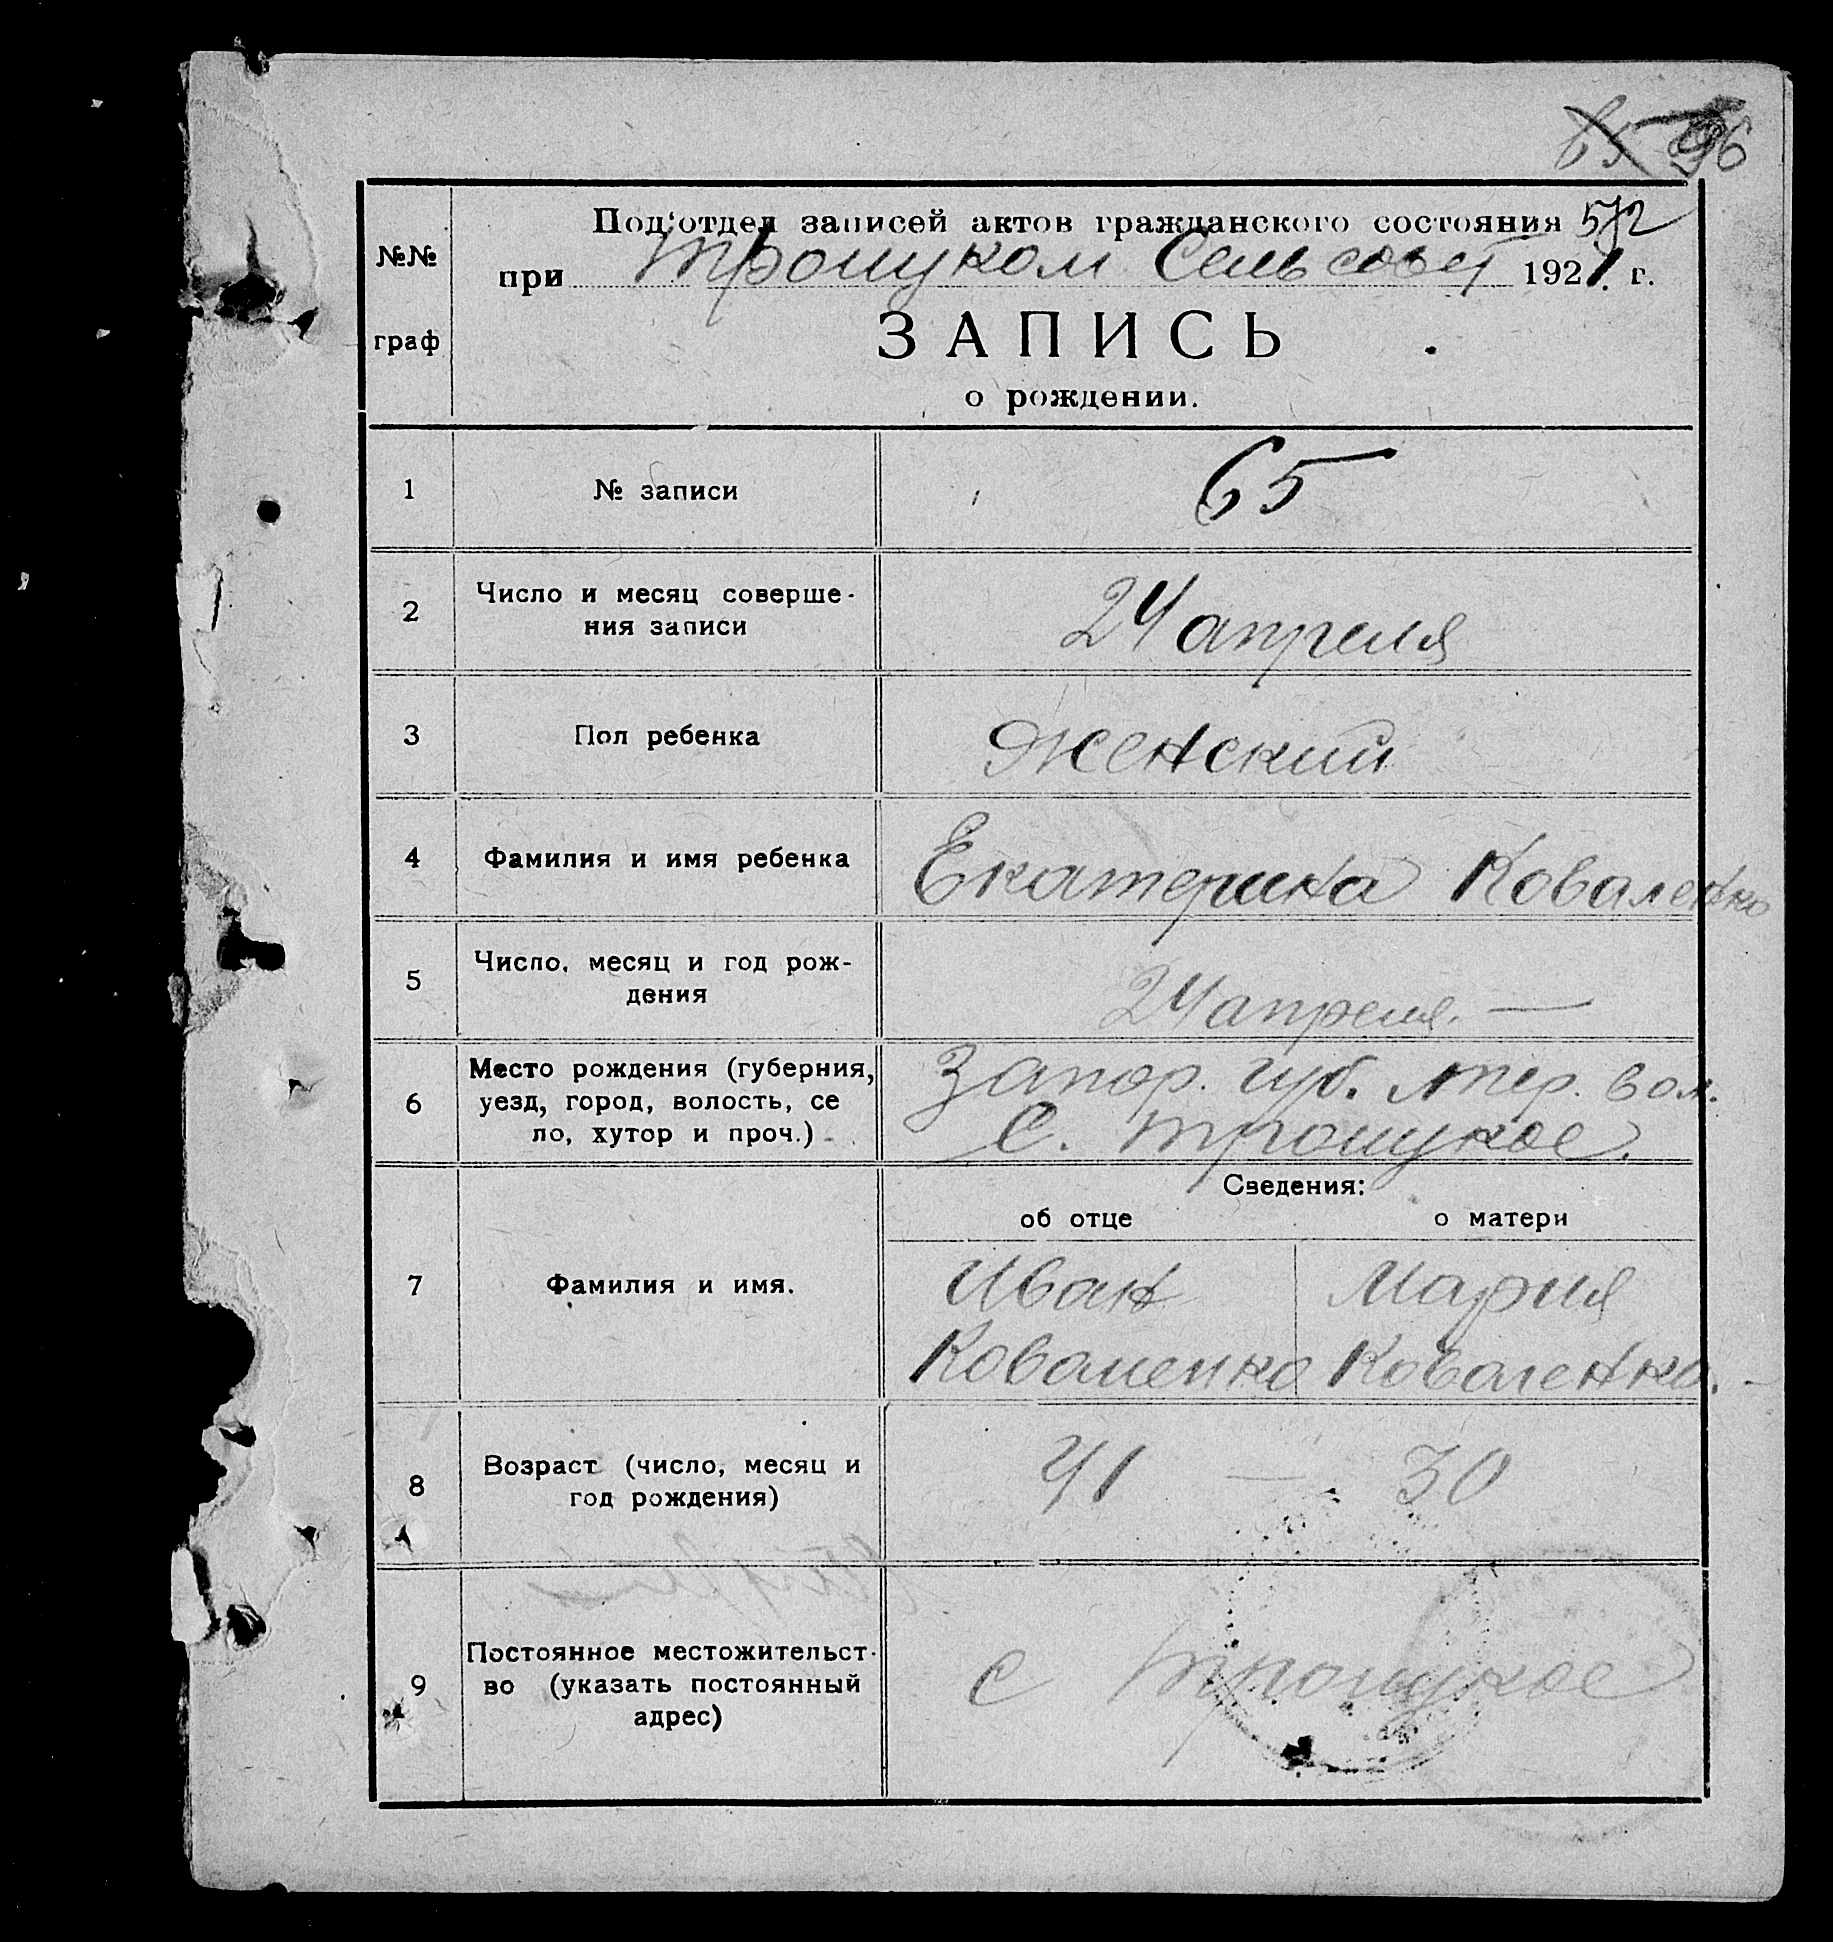 65 96
Под'отдел записей актов гражданского состояния 572
№№
при Троицком Сельсовет 1921 г.
граф
ЗАПИСЬ
о рождении.
1 № записи 65
2 Число и месяц соверше-
ния записи 24 апреля
3 Пол ребенка Женский
4 Фамилия и имя ребенка Екатерина Коваленко
5 Число, месяц и год рож-
дения 24 апреля. —
6 Место рождения (губерния, Запор. губ. Тер. вол.
уезд, город, волость, се
ло, хутор и проч.) С. Троицкое.
Сведения:
об отце о матери
7 Фамилия и имя. Иван Мария
Коваленко Коваленко. -
8 Возраст (число, месяц и 41 — 30
год рождения)
9 Постоянное местожительст-
во (указать постоянный с Троицкое
адрес)